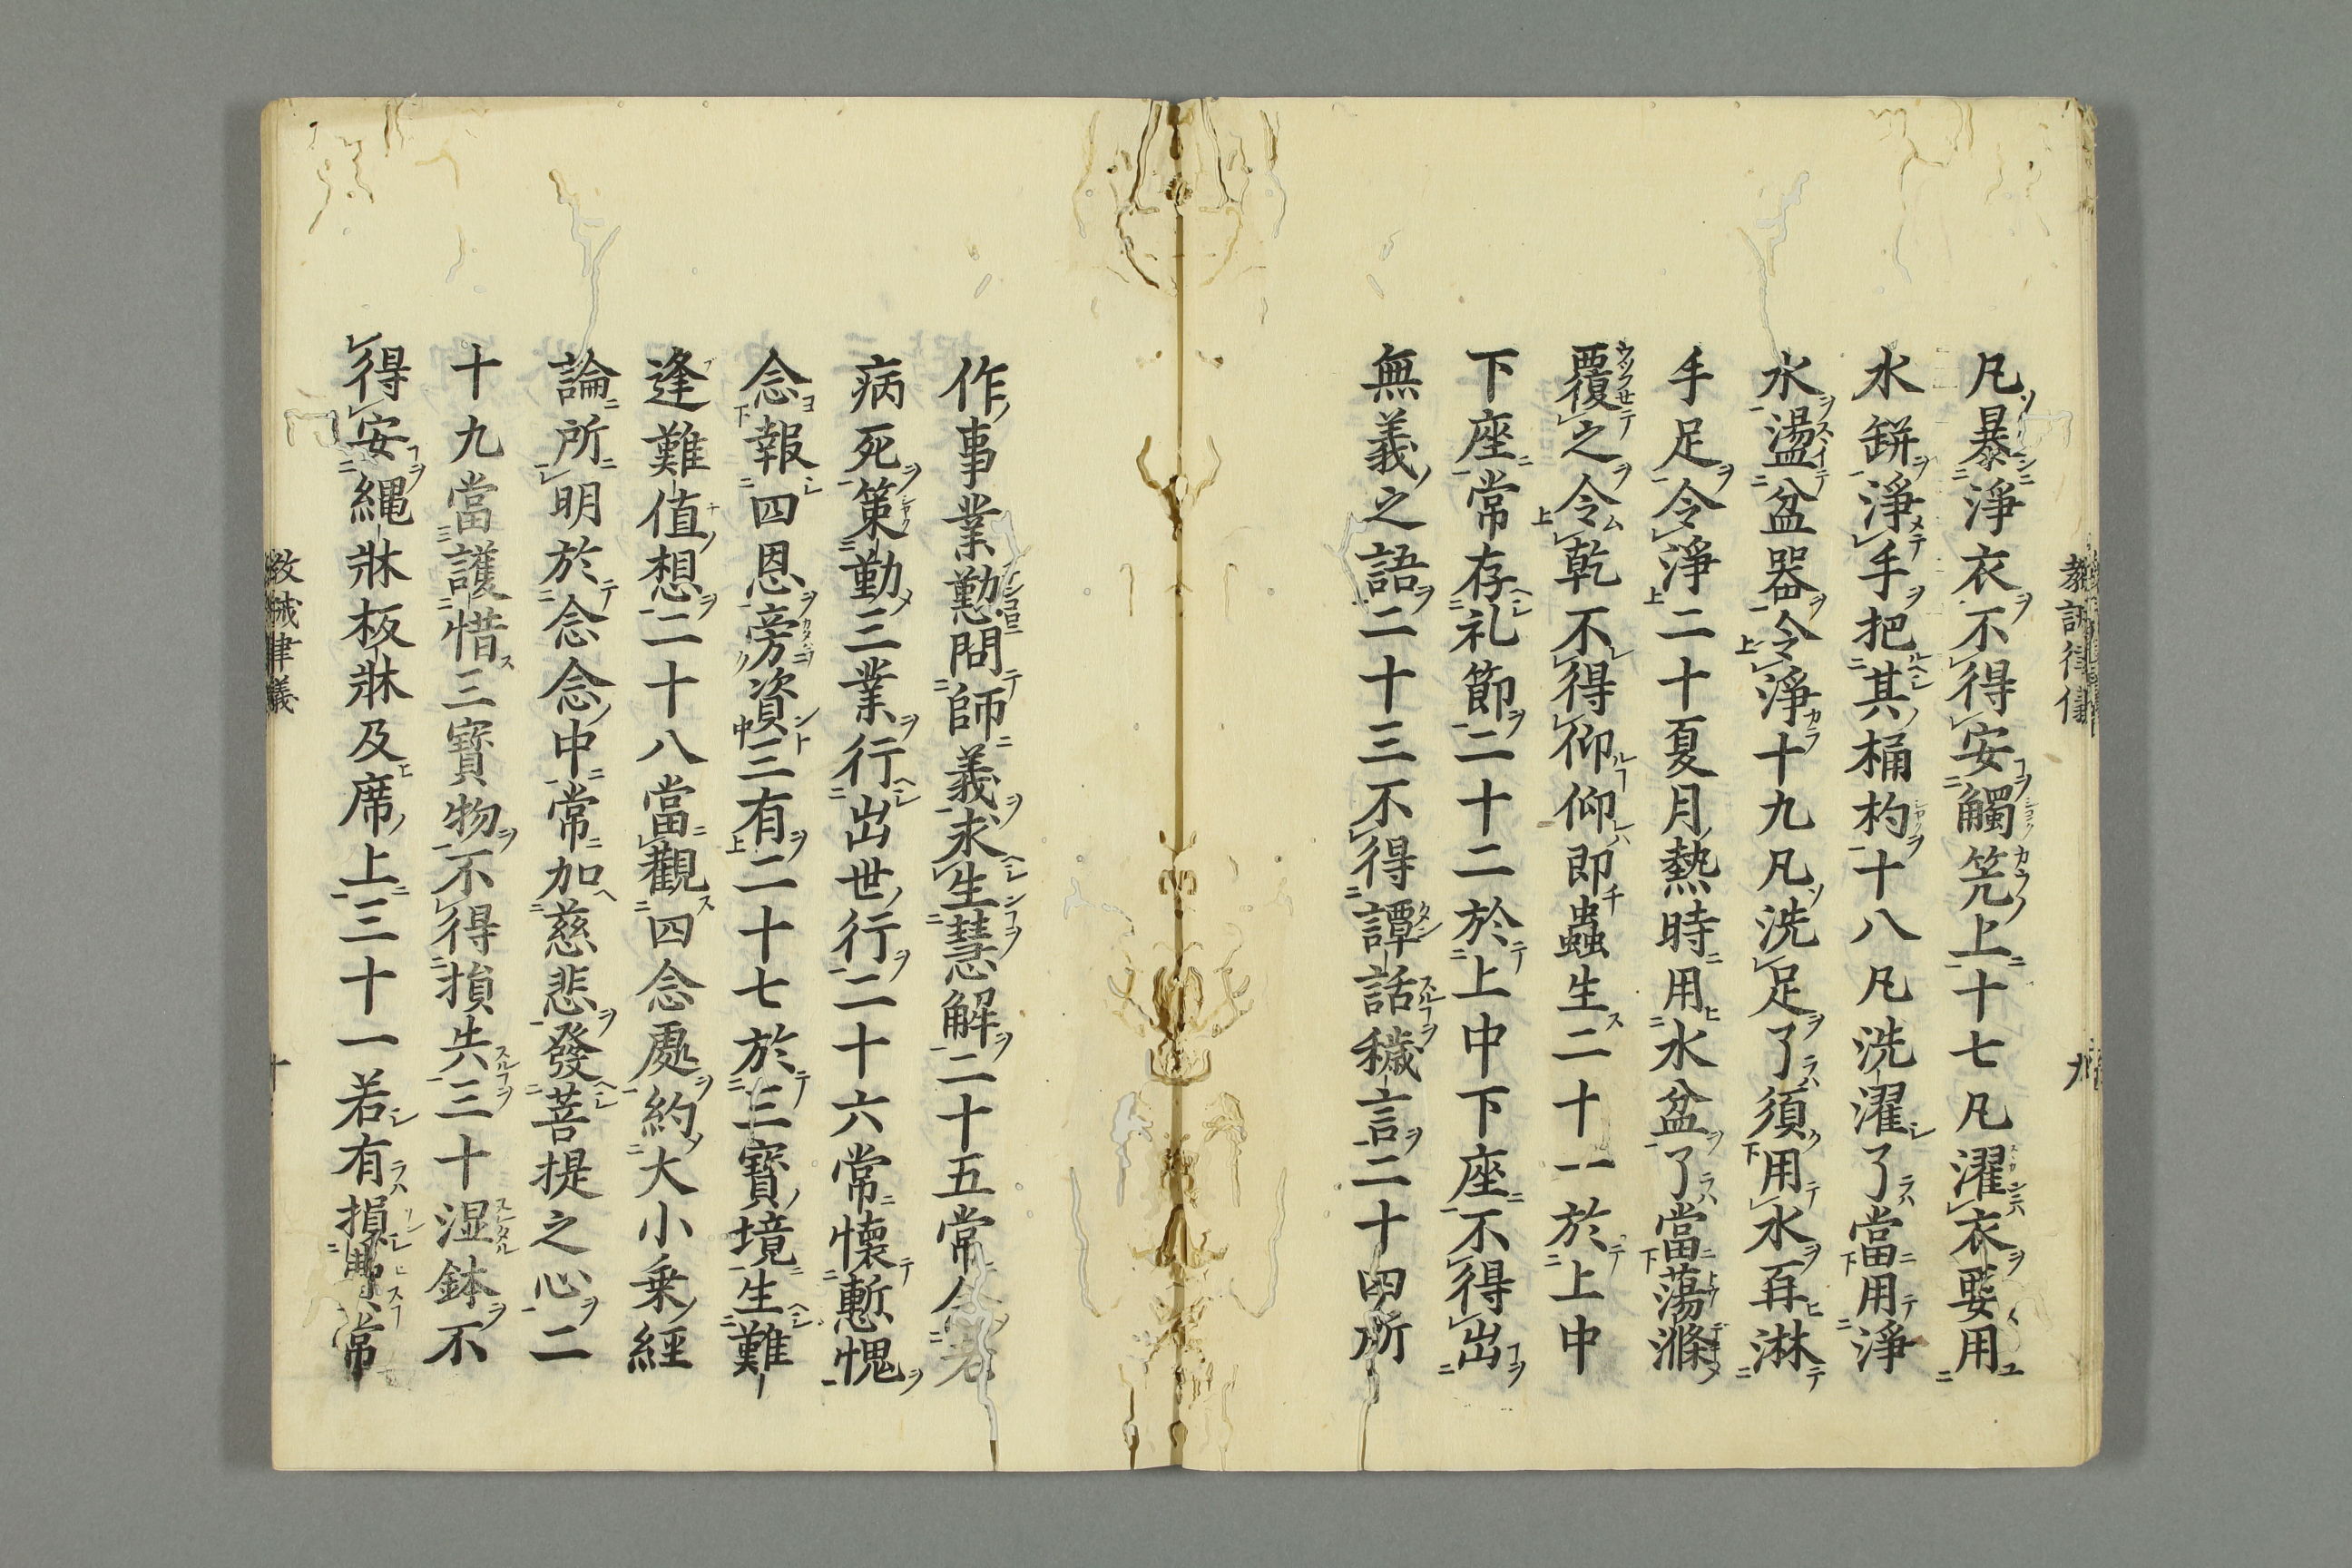 凡暴淨衣不得安觸筅上十七凡濯衣要用
水缾淨手把其桶杓十八凡洗濯了當用淨
水盪盆器令淨十九凡洗足了須用水再淋
手足令淨二十夏月熱時用水盆了當蕩滌
覆之令乾不得仰仰即蟲生二十一於上中
下座常存礼節二十二於上中下座不得出
無義之語二十三不得譚話穢言二十四所
作事業懃問師義求生慧解二十五常念老
病死策勤三業行出世行二十六常懷慙愧
念報四恩旁資三有二十七於三寶境生難
逢難値想二十八當觀四念處約大小乗經
論所明於念念中常加慈悲發菩提之心二
十九當護惜三寶物不得損失三十湿鉢不
得安縄牀板牀及席上三十一若有損費常
教誡律儀
九
教誡律義
十